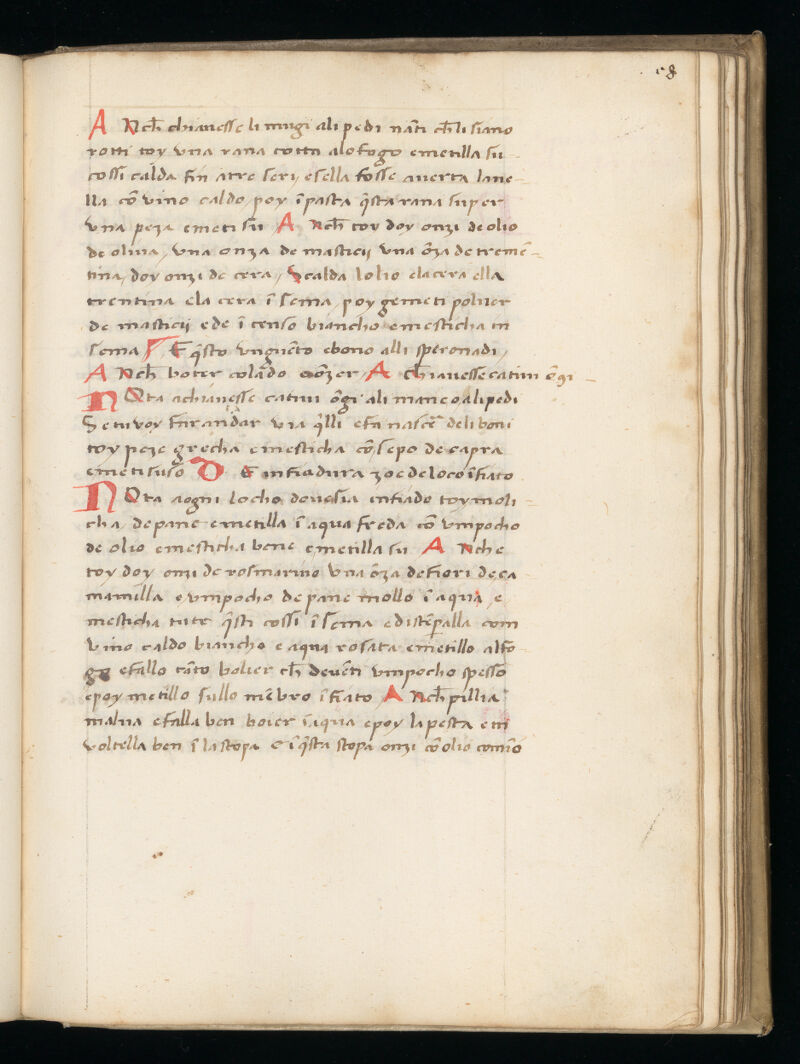 58
A Nch̄ chiauesse li mugi ali pedi nāti ch̄ li siano
rotti toy vna rana cotta alo fogo emetilla su
cossi calda fin atre seri, esella fosse auerta laue
lla cō vino caldo, poy īpasta q̄sta rana super
vna peza emeti sū A Nch̄ toy doy onzi de olio
de oliua, vna onza de masticij vna ōza de tremē
tina, doy onzi de cera, Scalda lolio elacera ella
trentina ela cera ī sema, poy gemeti poluer
de masticij ede ī censo biancho emesticha in
sema E q̄sto vnguēto ebono alli speronadi,
A Nch̄ boter colādo eōzer, A ch̄iauesse catiui ōgi
NOta achiauesse catiui ōgi ali mane oali pedi
Se tu voy far andar via q̄lli efa nascer̄ deli boni
toy peze grecha emesticha cō sepo de capra
emeti suso DE infiadura zoe de loco īfiato
NOta aogni locho doue sia infiado toy moli
cha, de pane emetilla ī aqua freda cō vmpocho
de olio emesticha bene emetilla su A Nche
toy doy onzi de rosmarino vna ōza de fiori de ca
mamilla e vmpocho de pane mollo ī aqua, e
mesticha tute q̄sti cossi ī sema edistēpalla com
vino caldo biancho e aqua rosata emetillo al fo
go efallo tāto bolier ch̄ deuēti vmpocho spesso
epoy metillo sullo mēbro īfiato A Nch̄ pillia
malua efalla ben boier ī aqua epoy la pesta e in
voltella ben ī la stopa e ī q̄sta stopa onzi cō olio comūo